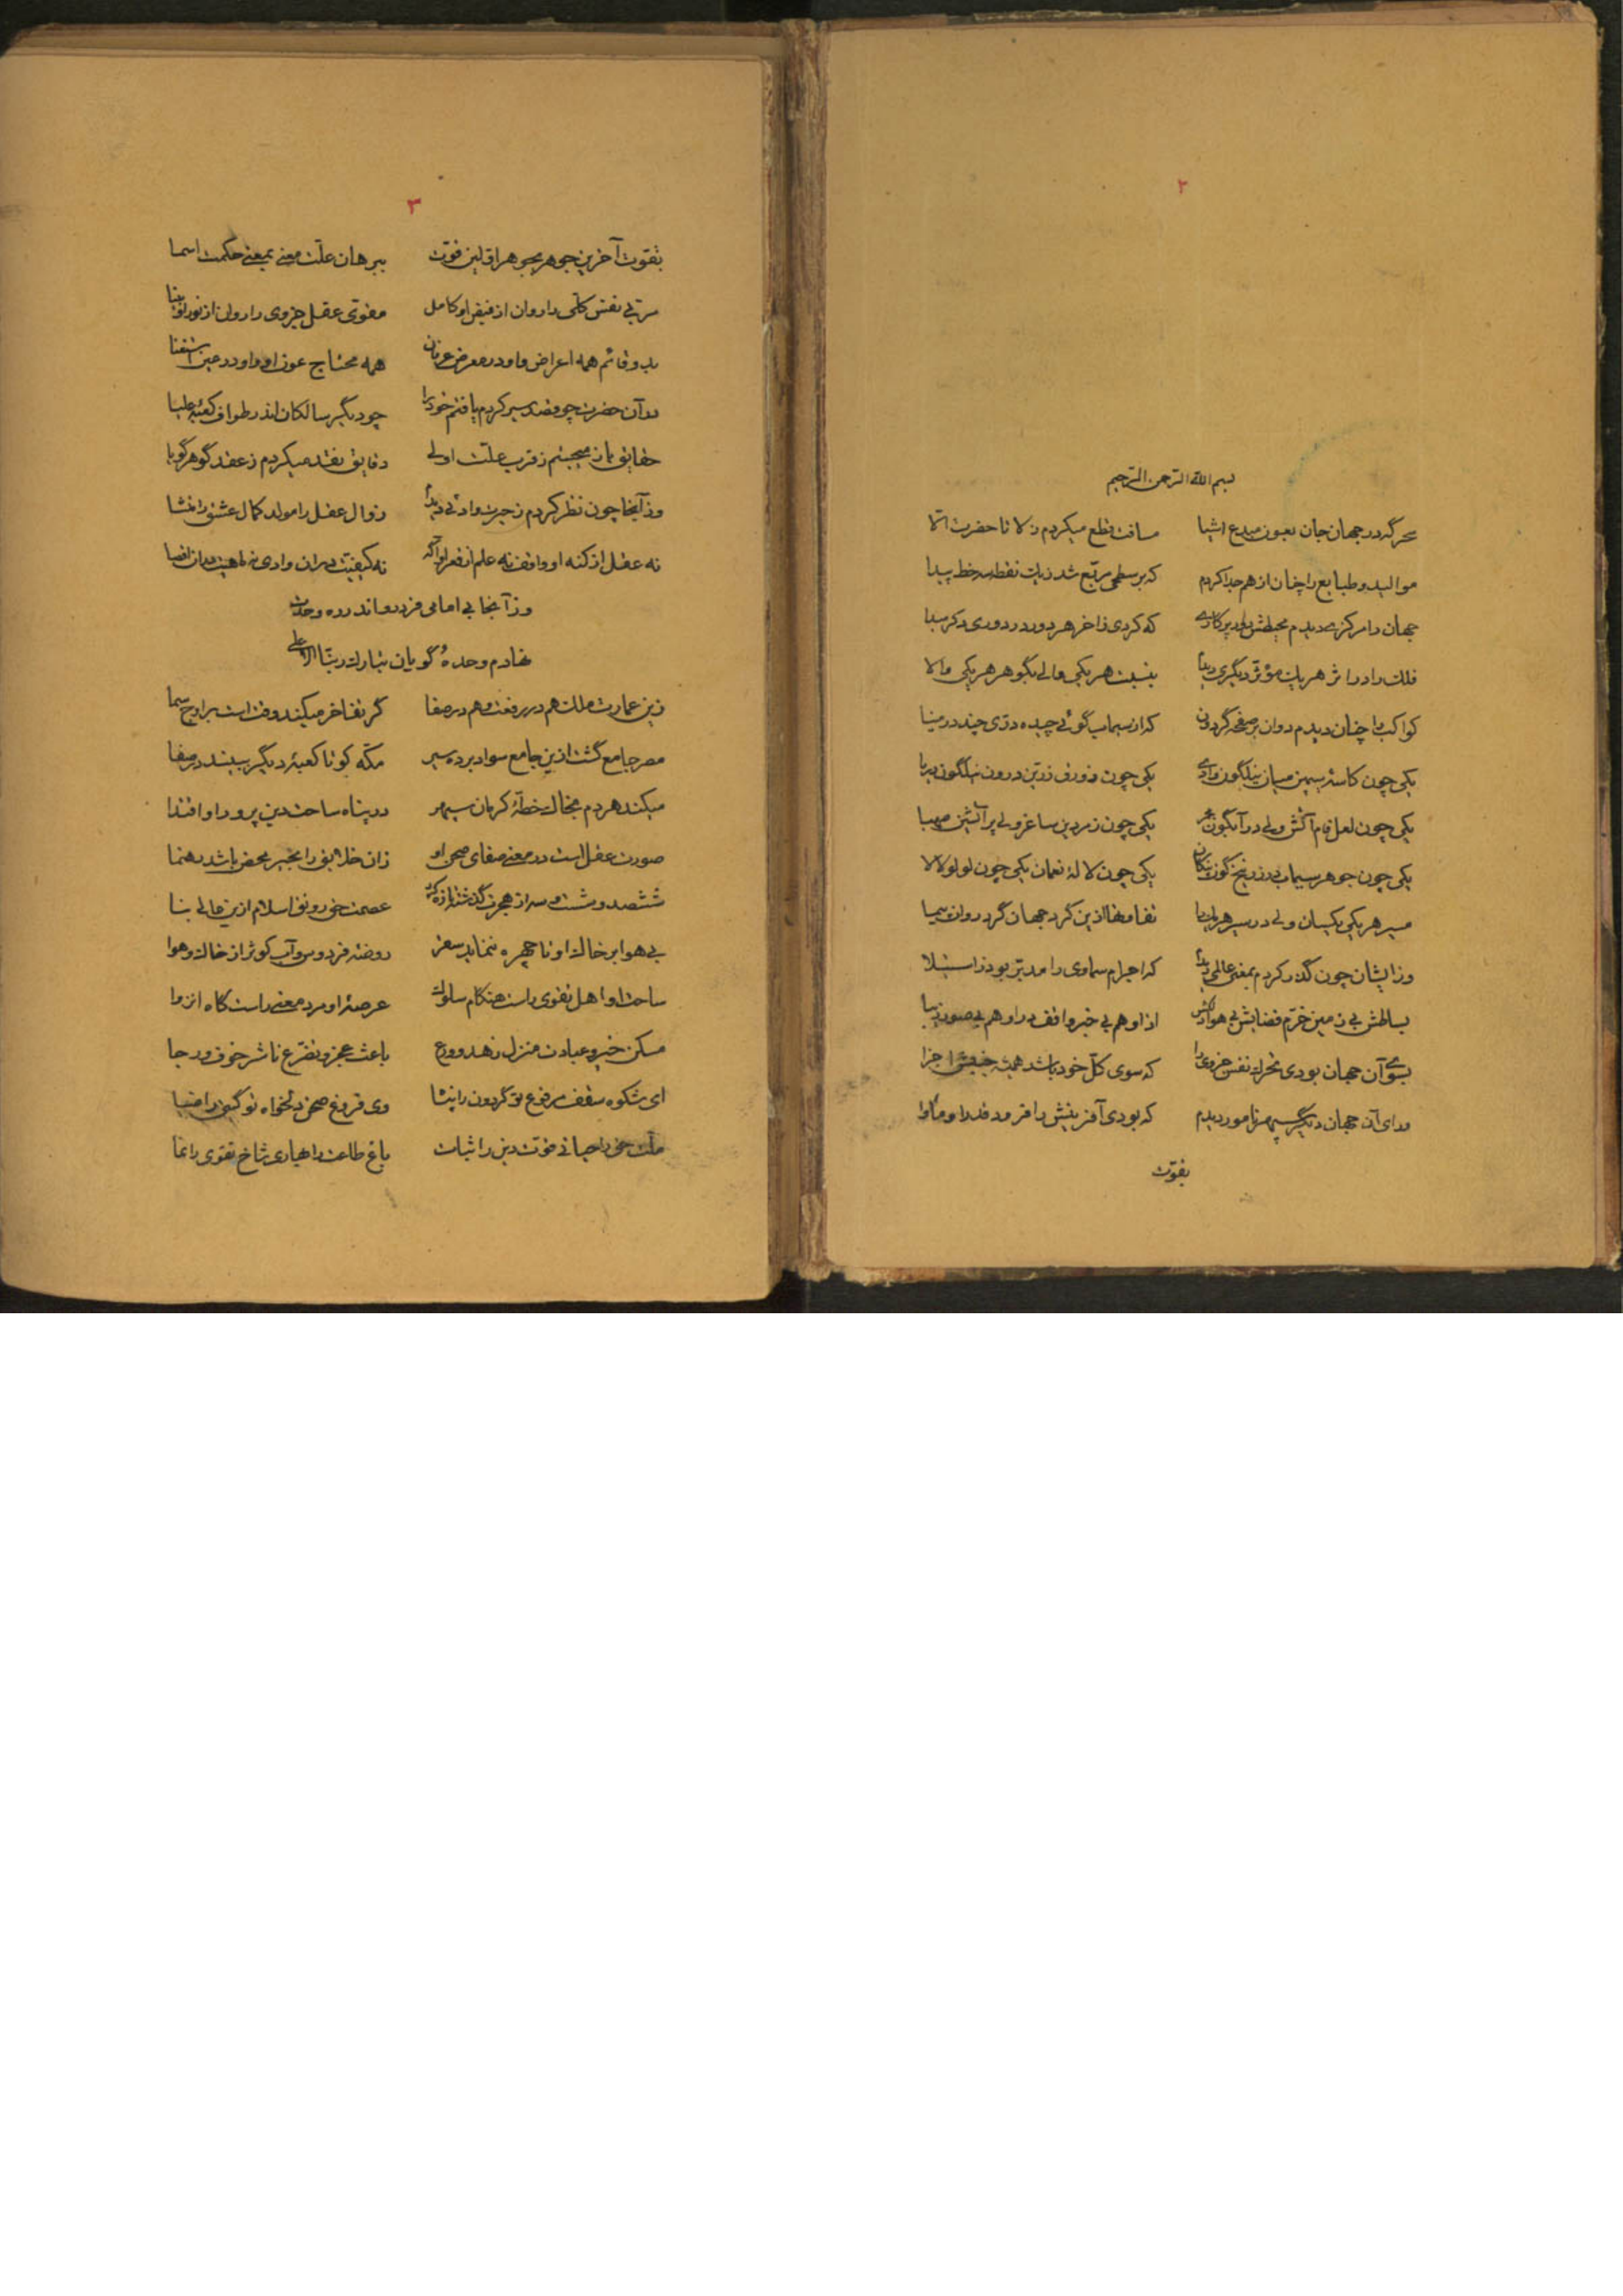 ۲
بسم الله الرحمن الرحیم
سحرگه در جهان جان بعون مبدع اشیا مسافت قطع میکردم ز لا تا حضرت الّا
موالید و طبایع را چنان از هم جدا کردم که بر سطحی مربّع شد ز یک نقطه سه خط پیدا
جهان را مرکزی دیدم محیطش دور پرگاری که کردی ز آخر هر دور دوری دگر مبدا
فلک را در اثر هر یک مؤثر دیگری دیدم بنسبت هر یکی عالی بگوهر هر یکی والا
کواکب را چنان دیدم دوان بر صفحه گردون که از سیماب گوئی چیده دری چند در مینا
یکی چون کاسهٔ سیمین میان نیلگون وادی یکی چون زورق زرین درون نیلگون دریا
یکی چون لعل فام آتش ولی در آبگون مجمر یکی چون زمردین ساغر ولی پر آتشین صهبا
یکی چون جوهر سیماب در زرنیخ گون یکی چون لالهٔ نعمان یکی چون لولو لالا
مسیر هر یکی یکسان ولی در سیر هر یک را ازین گرد جهان گرد روان سیما
وز ایشان چون گذر کردم بمعنی عالمی دیدم که اجرام سماوی را مدبّر بود ز استیلا
بساطش بی زمین خرّم فضایش بی هوا دلکش از او هم بی خبر واقف در او هم بی صور زیبا
بسوی آن جهان بودی تحرک نفس جزوی را که سوی کلّ خود باشد همیشه جنبش اجزا
ورای آن جهان دیگر سپهر نامور دیدم که بودی آفرینش را فرود قدر او ماوا
بقوّت
۳
بقوت آخرین جوهر بجوهر اولین قوت ببرهان علّت معنی بمعنی حکمت اسما
مربّی نفس کلّی را روان از فیض او کامل مقوّی عقل جزوی را روان از نور او بینا
بدو قائم همه اعراض و او در معرض همه محتاج عون او و او در عین استغنا
در آن حضرت چو قصد سیر کردم یافتم خود را چو دیگر سالکان اندر طواف کعبهٔ علیا
حقایق باز میجستم ز قرب علّت اولی دقایق نقد میکردم ز عقد گوهر گویا
وز آنجا چون نظر کردم ز حیرت وادئی دیدم زوال عقل را مولد کمال عشق را منشا
نه عقل از کنه او واقف نه علم از قعر او آگه نه کیفیّت در آن وادی نه ماهیّت در آن اقصا
وز آنجا بی امامی فرد رو اندر ره وحدت
نهادم وحده گویان تبارک ربّنا الاعلی
زین عمارت ملک هم در رفعت و هم در صفا گر تفاخر میکند وقت است بر اوج سما
مصر جامع گشت ازین جامع سواد برده سیر مکّه کو تا کعبهٔ دیگر ببیند در صفا
میکند هر دم بخاک خطّهٔ کرمان سپهر در پناه ساحت دین پرور او اقتدا
صورت عقل است در معنی صفای صحن او زان خلایق را بخیر محض باشد رهنما
ششصد و شست و سه از هجرت گذشته تازه کرد عصمت حق رونق اسلام ازین عالی بنا
بی هوا بر خاک او تا چهره ننماید سفر روضهٔ فردوس و آب کوثر از خاک و هوا
ساحت او اهل تقوی راست هنگام سلوک عرصهٔ او مرد معنی راست گاه انزوا
مسکن خیر و عبادت منزل زهد و ورع باعث عجز و تضرّع ناشر خوف و رجا
ای شکوه سقف مرفوع تو گردون را وی فروغ صحن دلخواه تو گیتی را ضیا
ملّت حق را حیاتی قوت دین را ثبات باغ طاعت را بهاری شاخ تقوی را نما